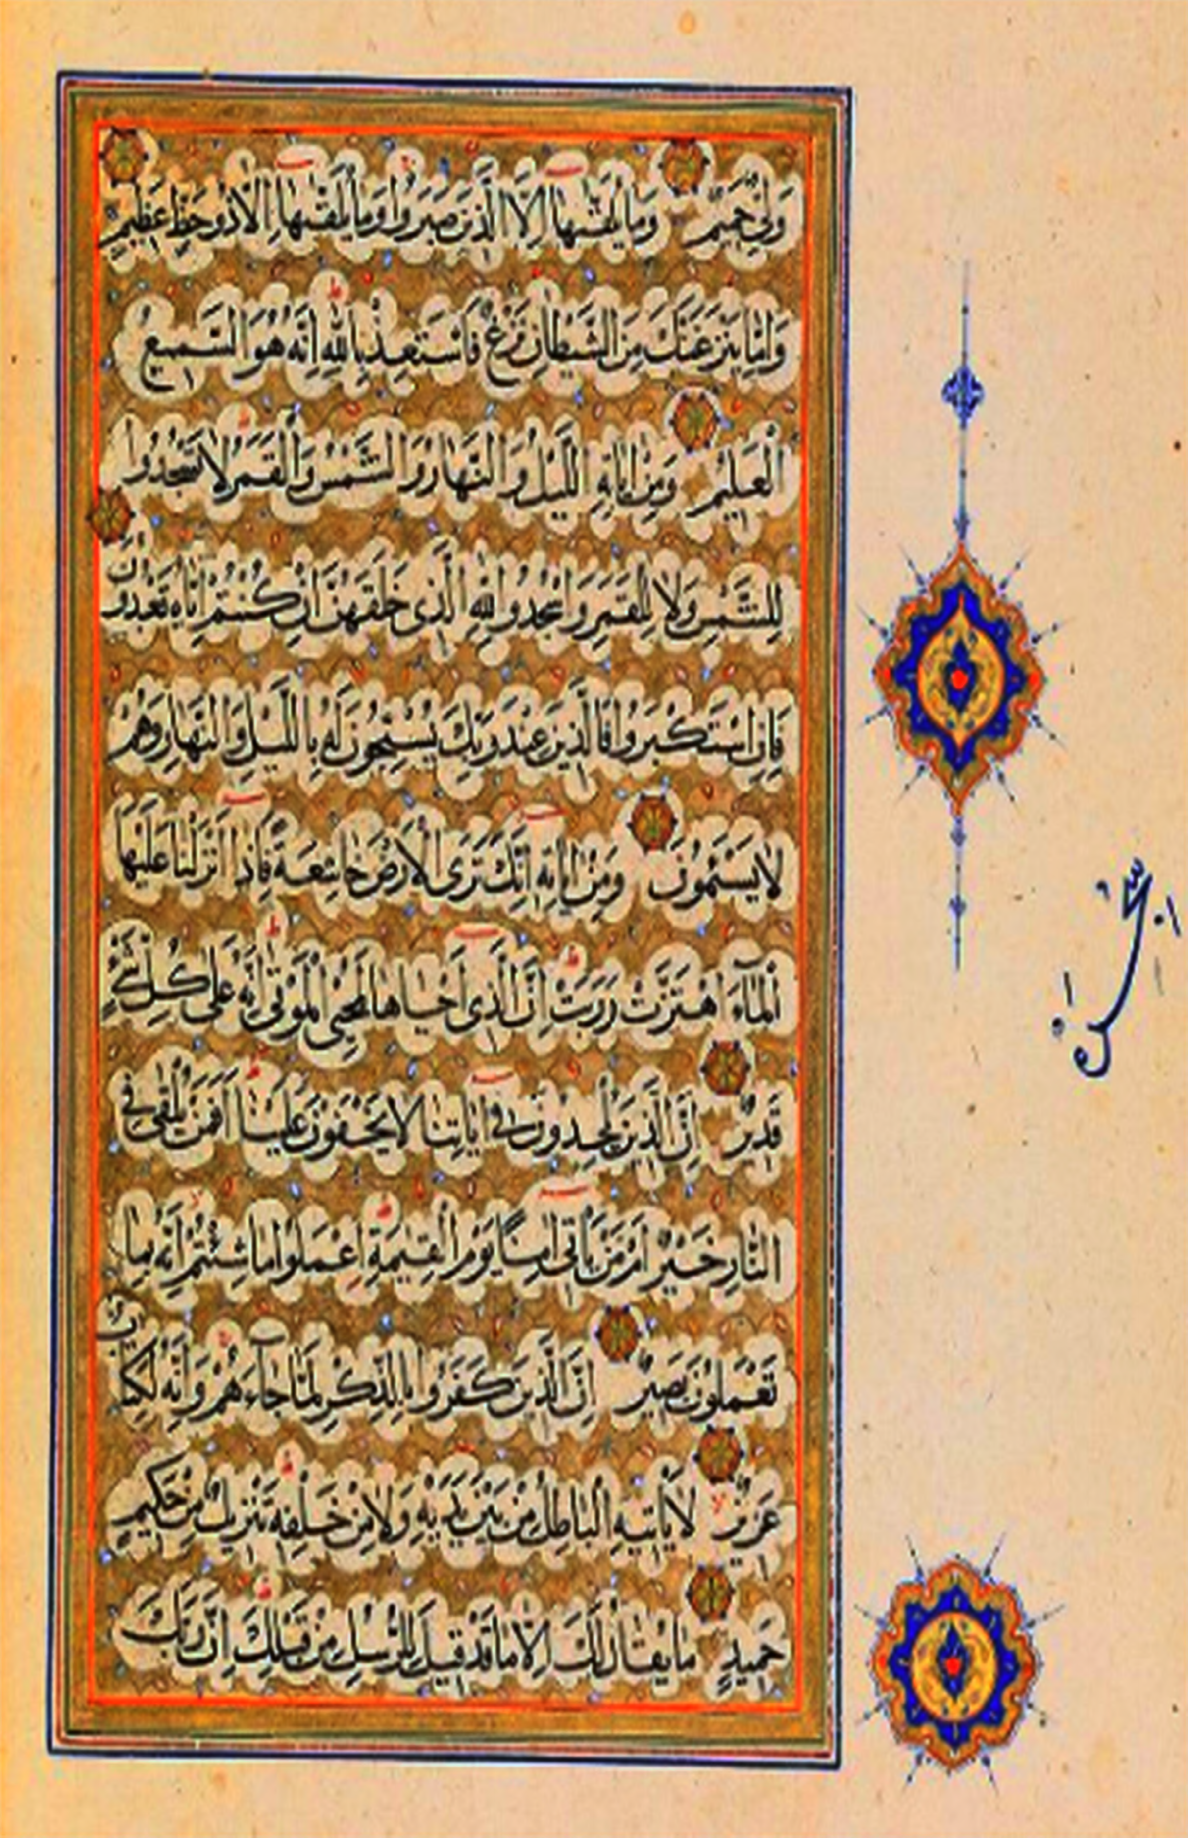 وَلِيٌّ حَمِيمٌ وَمَا يُلَقّٰىهَا اِلَّا الَّذِينَ صَبَرُوا وَمَا يُلَقّٰىهَا اِلَّا ذُو حَظٍّ عَظِيمٍ
وَاِمَّا يَنْزَغَنَّكَ مِنَ الشَّيْطَانِ نَزْغٌ فَاسْتَعِذْ بِاللّٰهِ اِنَّهُ هُوَ السَّمِيعُ
الْعَلِيمُ وَمِنْ اٰيَاتِهِ اللَّيْلُ وَالنَّهَارُ وَالشَّمْسُ وَالْقَمَرُ لَا تَسْجُدُوا
لِلشَّمْسِ وَلَا لِلْقَمَرِ وَاسْجُدُوا لِلّٰهِ الَّذِى خَلَقَهُنَّ اِنْ كُنْتُمْ اِيَّاهُ تَعْبُدُونَ
فَاِنِ اسْتَكْبَرُوا فَالَّذِينَ عِنْدَ رَبِّكَ يُسَبِّحُونَ لَهُ بِاللَّيْلِ وَالنَّهَارِ وَهُمْ
لَا يَسْئَمُونَ وَمِنْ اٰيَاتِهِ اَنَّكَ تَرَى الْاَرْضَ خَاشِعَةً فَاِذَا اَنْزَلْنَا عَلَيْهَا
الْمَآءَ اهْتَزَّتْ وَرَبَتْ اِنَّ الَّذِى اَحْيَاهَا لَمُحْيِى الْمَوْتٰى اِنَّهُ عَلٰى كُلِّ شَىْءٍ
قَدِيرٌ اِنَّ الَّذِينَ يُلْحِدُونَ فِى اٰيَاتِنَا لَا يَخْفَوْنَ عَلَيْنَا اَفَمَنْ يُلْقٰى فِى
النَّارِ خَيْرٌ اَمْ مَنْ يَاْتِى اٰمِنًا يَوْمَ الْقِيٰمَةِ اِعْمَلُوا مَا شِئْتُمْ اِنَّهُ بِمَا
تَعْمَلُونَ بَصِيرٌ اِنَّ الَّذِينَ كَفَرُوا بِالذِّكْرِ لَمَّا جَآءَهُمْ وَاِنَّهُ لَكِتَابٌ
عَزِيزٌ لَا يَاْتِيهِ الْبَاطِلُ مِنْ بَيْنِ يَدَيْهِ وَلَا مِنْ خَلْفِهِ تَنْزِيلٌ مِنْ حَكِيمٍ
حَمِيدٍ مَا يُقَالُ لَكَ اِلَّا مَا قَدْ قِيلَ لِلرُّسُلِ مِنْ قَبْلِكَ اِنَّ رَبَّكَ